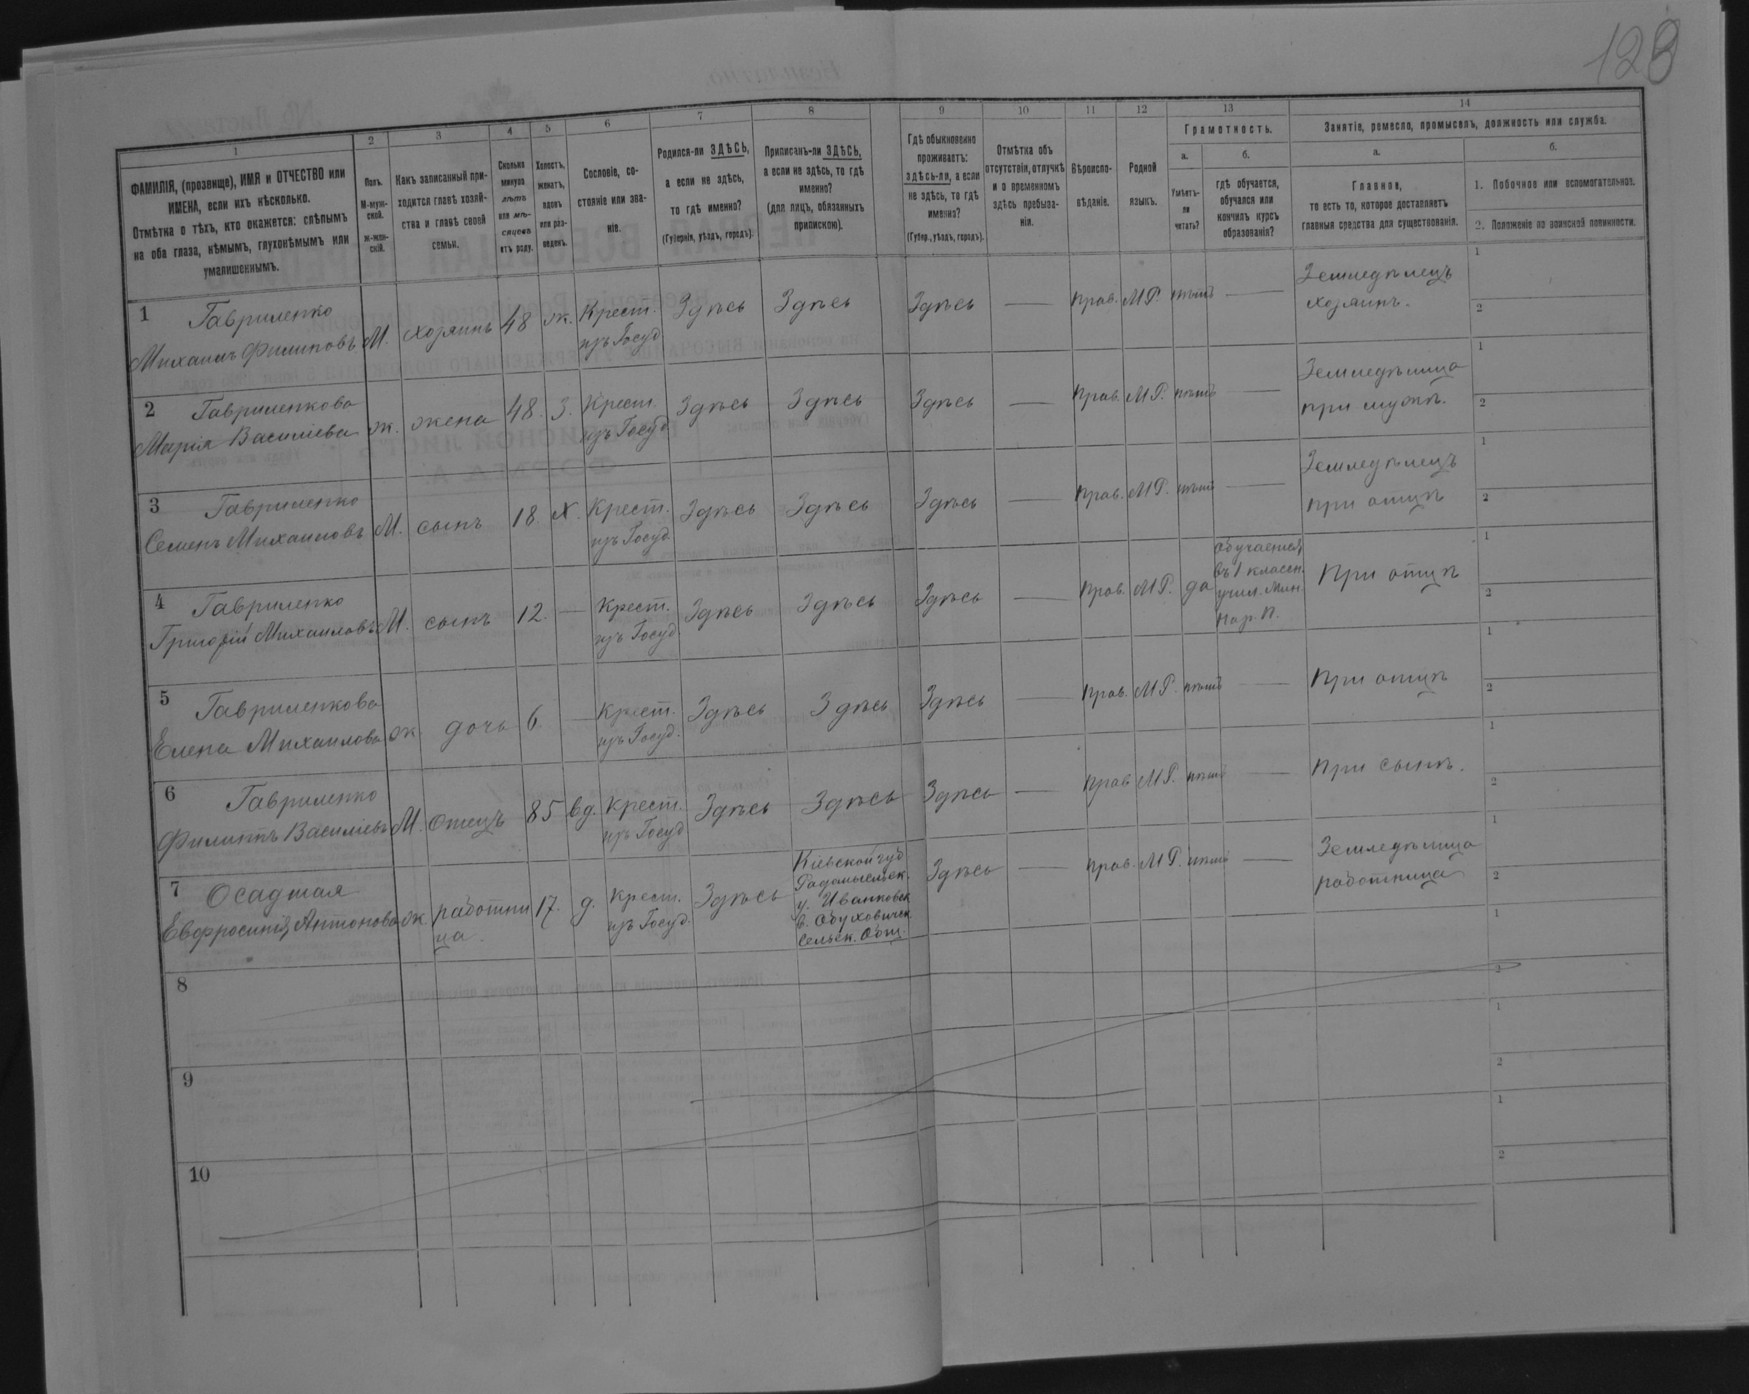 128
1 2 3 4 5 6 7 8 9 10 11 12 13 14
ФАМИЛІЯ, (прозвище), ИМЯ и ОТЧЕСТВО или
ИМЕНА, если ихъ нѣсколько.
Отмѣтка о тѣхъ, кто окажется: слѣпымъ
на оба глаза, нѣмымъ, глухонѣмымъ или
умалишеннымъ.
Полъ.
М-муж-
ской.
Ж-жен-
скій.
Какъ записанный при-
ходится главѣ хозяй-
ства и главѣ своей
семьи.
Сколько
минуло
лѣтъ
или мѣ-
сяцевъ
отъ роду.
Холостъ,
женатъ,
вдовъ
или раз-
веденъ.
Сословіе, со-
стояніе или зва-
ніе.
Родился-ли ЗДѢСЬ,
а если не здѣсь,
то гдѣ именно?
(Губернія, уѣздъ, городъ).
Приписанъ-ли ЗДѢСЬ,
а если не здѣсь, то гдѣ
именно?
(для лицъ, обязанныхъ
припискою).
Гдѣ обыкновенно
проживаетъ:
здѣсь-ли, а если
не здѣсь, то гдѣ
именно?
(Губер., уѣздъ, городъ).
Отмѣтка объ
отсутствіи, отлучкѣ
и о временномъ
здѣсь пребыва-
ніи.
Вѣроиспо-
вѣданіе.
Родной
языкъ.
Грамотность.
а.
Умѣетъ-
ли
читать?
б.
гдѣ обучается,
обучался или
кончилъ курсъ
образованія?
Занятіе, ремесло, промыселъ, должность или служба.
а.
Главное,
то есть то, которое доставляетъ
главныя средства для существованія.
б.
1. Побочное или вспомогательное.
2. Положеніе по воинской повинности.
1 Гавриленко
Михаилъ Филиповъ М. хозяинъ 48 ж. Крест. изъ Госуд Здѣсь Здѣсь Здѣсь — Прав. М.Р. нѣтъ — Земледѣлецъ хозяинъ. 1 2
2 Гавриленкова
Марія Василіева ж. жена 48. З. Крест. изъ Госуд Здѣсь Здѣсь Здѣсь — Прав. М.Р. нѣтъ — Земледѣлица при мужѣ. 1 2
3 Гавриленко
Семенъ Михаиловъ М. сынъ 18 Х. Крест. изъ Госуд Здѣсь Здѣсь Здѣсь — Прав. М.Р. нѣтъ — Земледѣлецъ при отцѣ 1 2
4 Гавриленко
Григорій Михаиловъ М. сынъ 12. — Крест. изъ Госуд Здѣсь Здѣсь Здѣсь — Прав. М.Р. да обучается въ 1 классн. учил. Мин. Нар. П. При отцѣ 1 2
5 Гавриленкова
Елена Михаилова ж. дочь 6 — Крест. изъ Госуд. Здѣсь Здѣсь Здѣсь — Прав. М.Р. нѣтъ — При отцѣ 1 2
6 Гавриленко
Филиппъ Василіевъ М. отецъ 85 вд. Крест. изъ Госуд Здѣсь Здѣсь Здѣсь — Прав М.Р. нѣтъ — При сынѣ. 1 2
7 Осадшая
Евфросинія Антонова ж. работни ца. 17. д. Крест. изъ Госуд. Здѣсь Кіевской губ Радомысльск. у. Иванковск в. Обуховичск. Сельск. Общ. Здѣсь — Прав. М.Р. нѣтъ — Земледѣлица работница 1 2
8 1 2
9 1 2
10 1 2